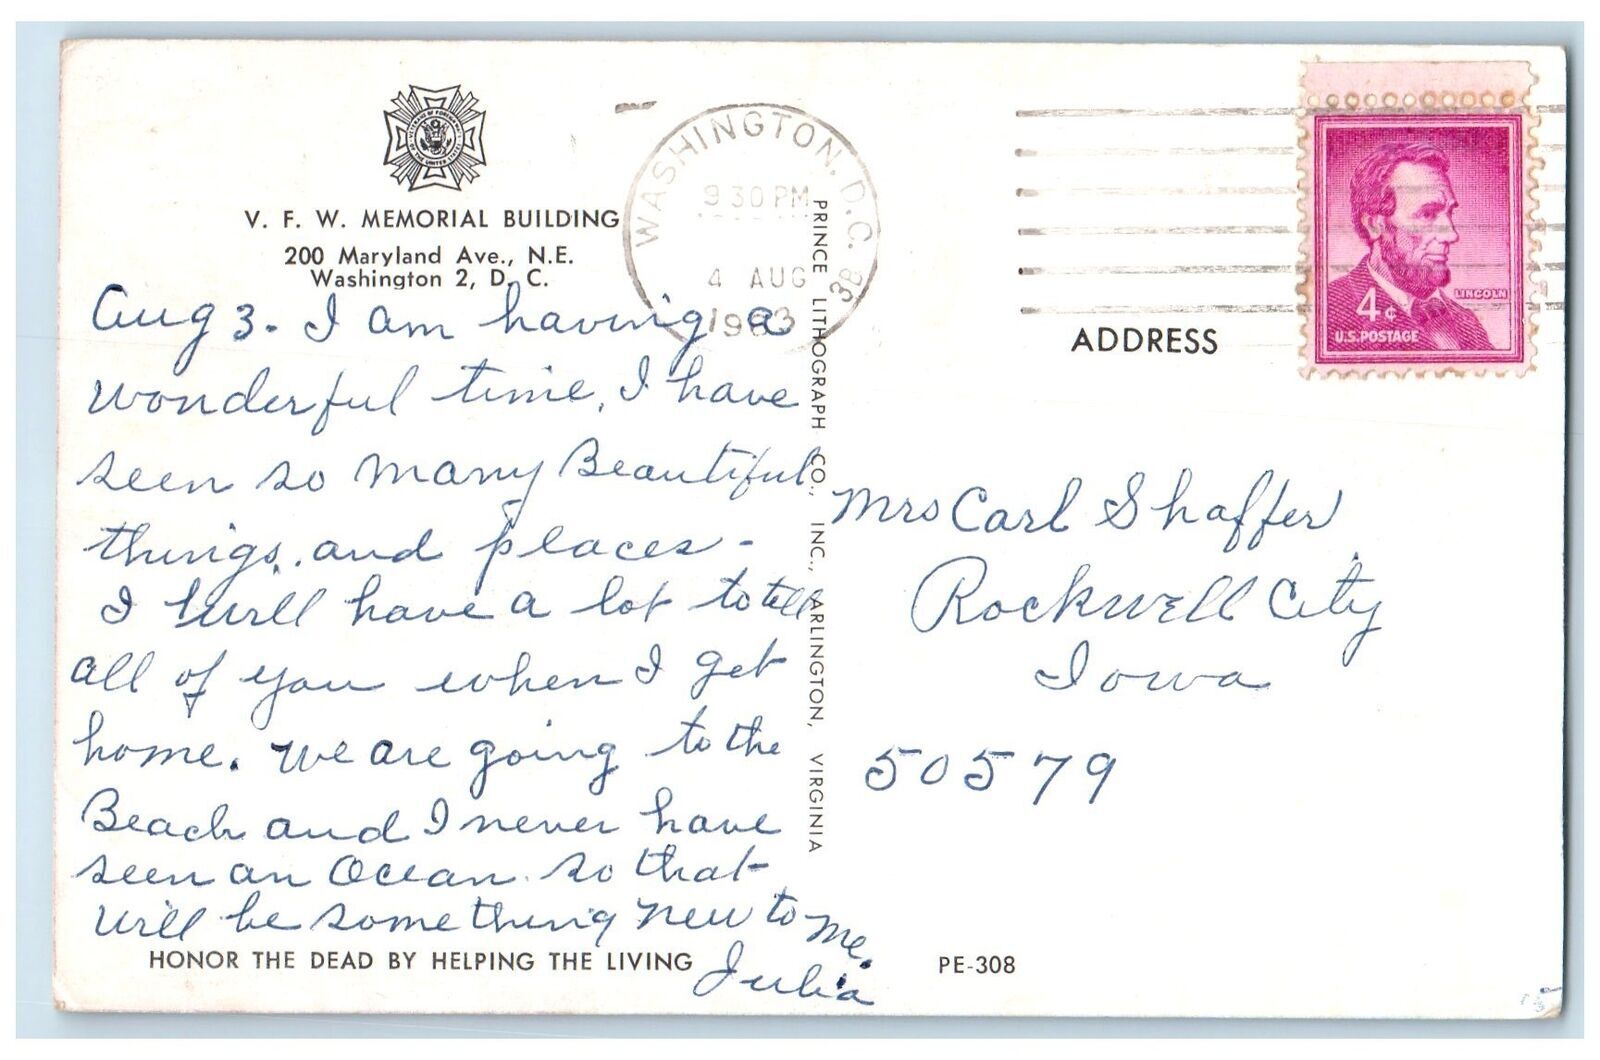 VETERANS OF FOREIGN WARS
OF THE UNITED STATES
V. F. W. MEMORIAL BUILDING
200 Maryland Ave., N.E.
Washington 2, D. C.
Aug 3. I am having a
wonderful time, I have
seen so many Beautiful
things, and places -
I will have a lot to tell
all of you when I get
home. We are going to the
Beach and I never have
seen an Ocean. so that
will be something new to me.
Julia
HONOR THE DEAD BY HELPING THE LIVING
PRINCE LITHOGRAPH CO., INC., ARLINGTON, VIRGINIA
WASHINGTON, D.C. 3B
9 30 PM
4 AUG
1963
LINCOLN
4¢
U.S. POSTAGE
ADDRESS
Mrs Carl Shaffer
Rockwell City
Iowa
50579
PE-308
15